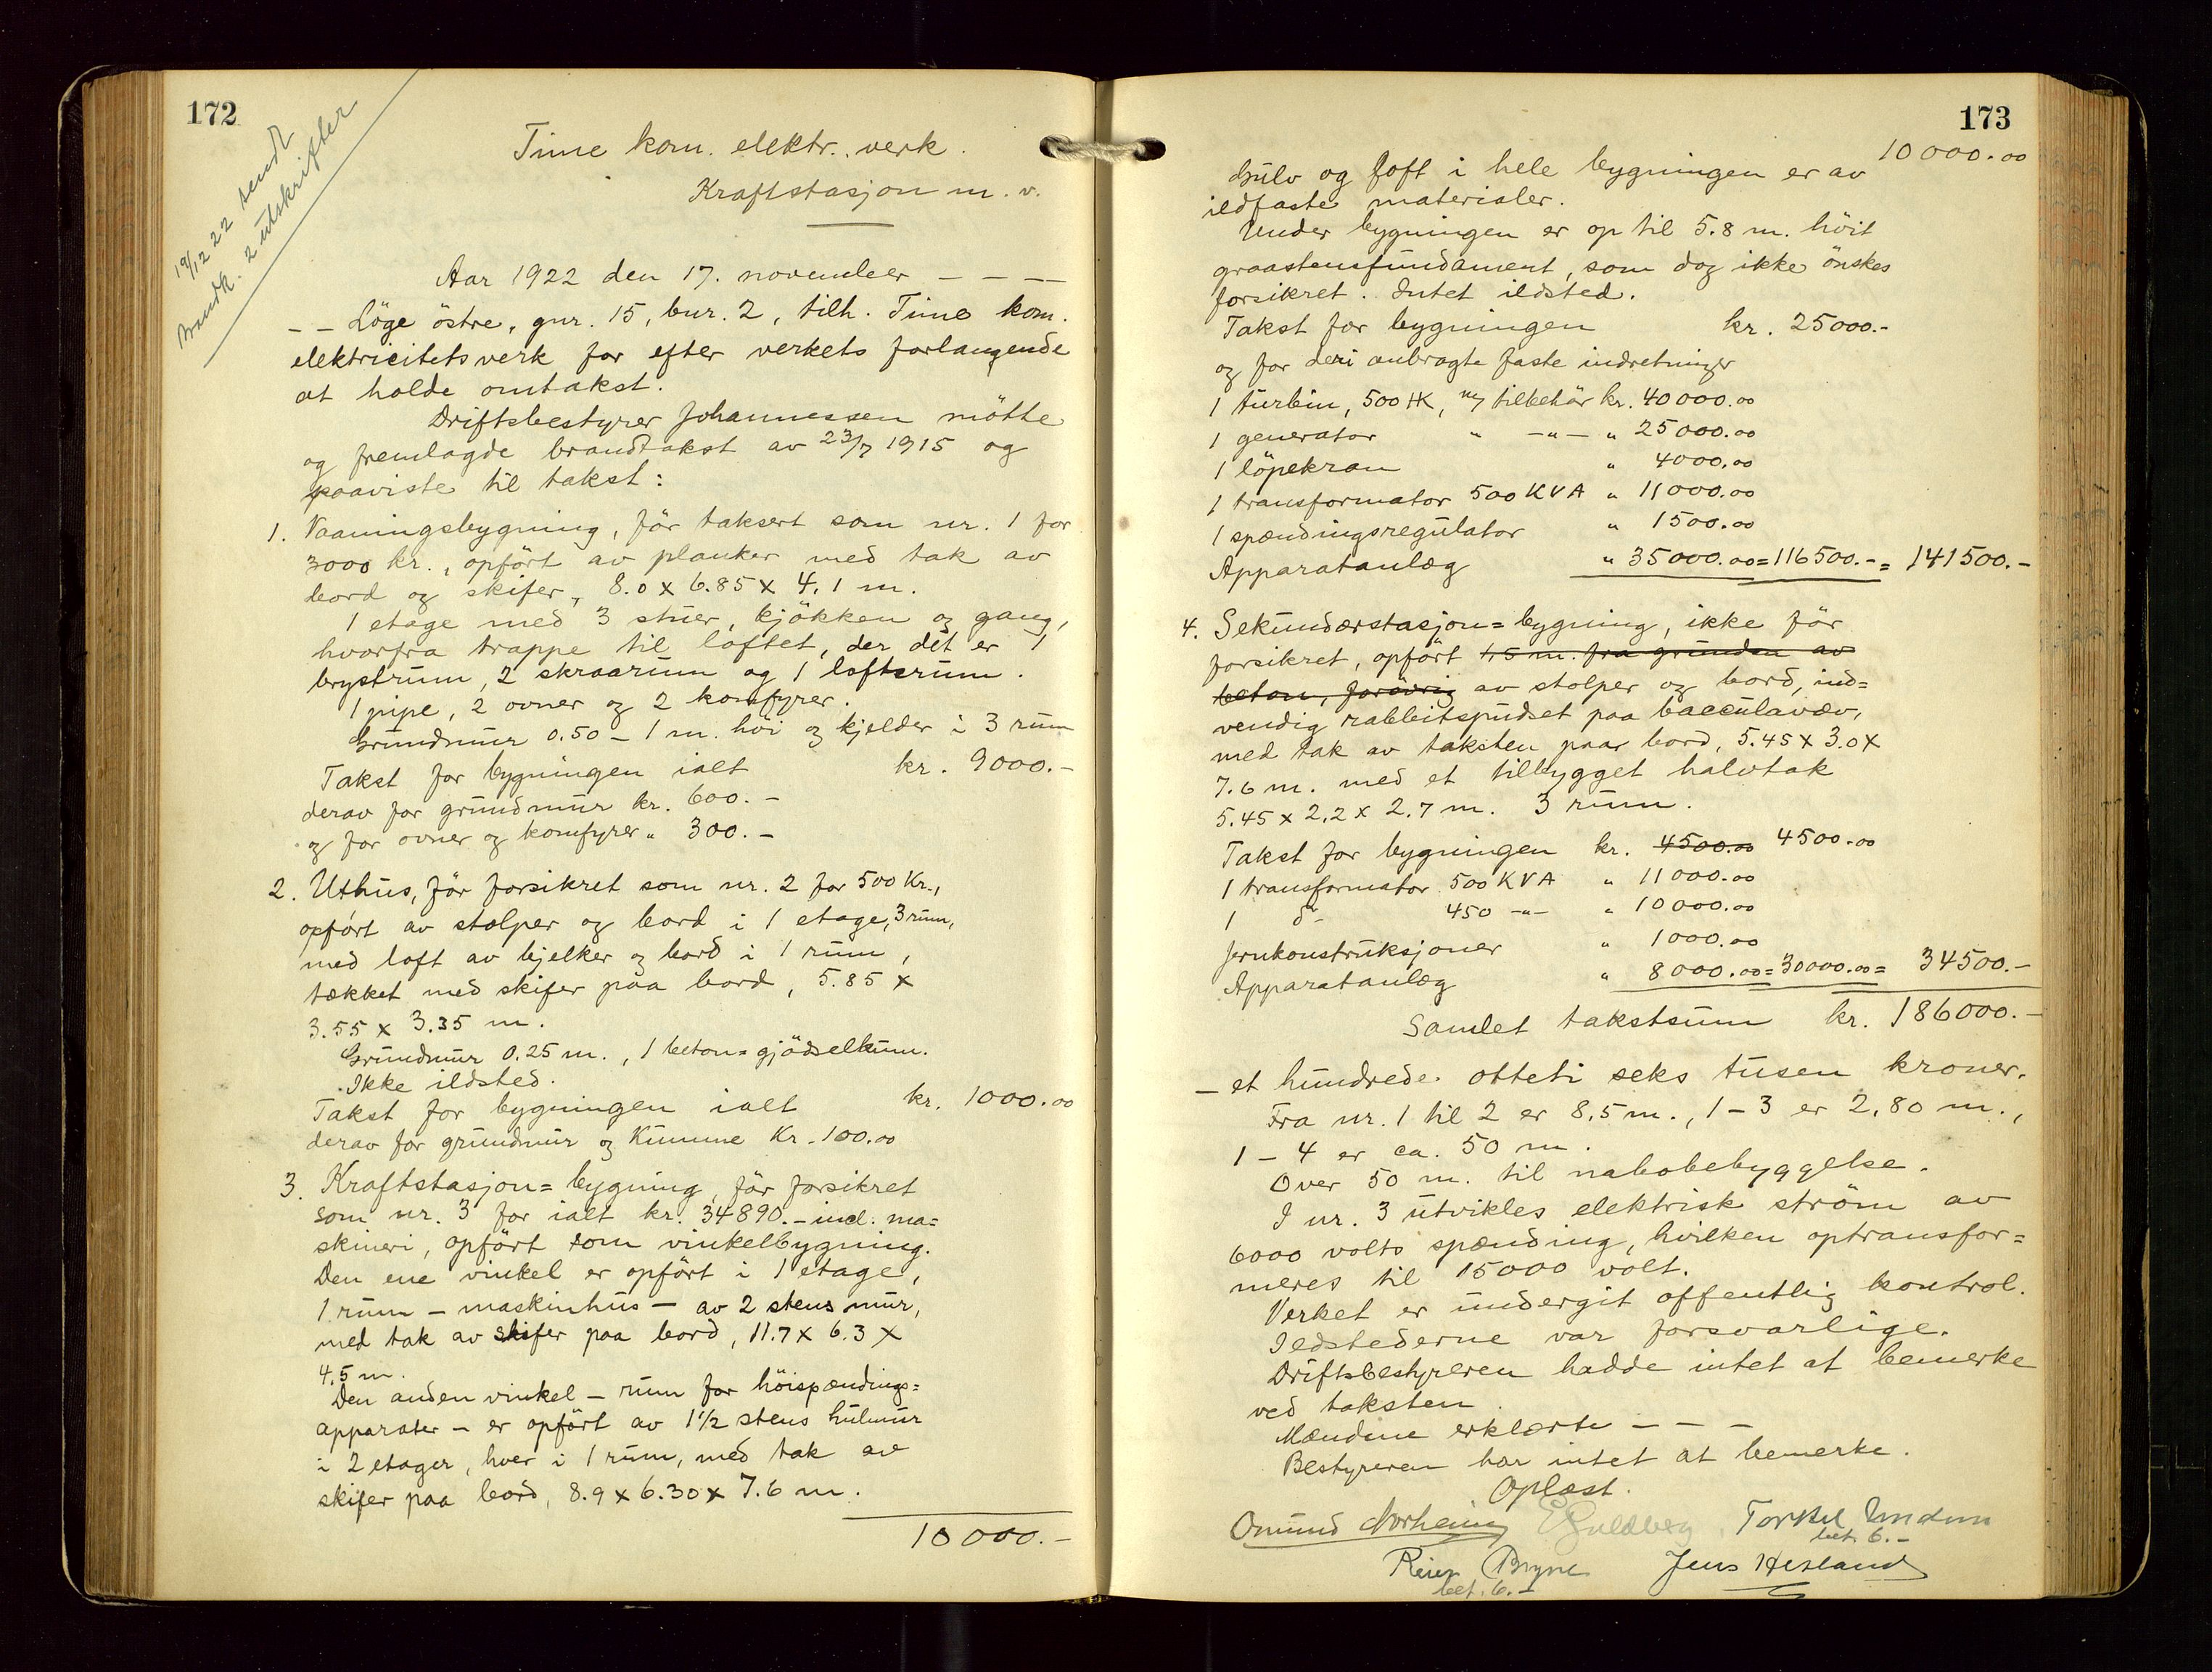 172
19/12 22 sendt
brandk. 2 utskrifter
Time kom. elektr. verk.
Kraftstasjon m. v.
Aar 1922 den 17. november - - -
- - Löge östre, gnr. 15, bnr. 2, tilh. Time kom.
elektricitetsverk for efter verkets forlangende
at holde omtakst.
Driftsbestyrer Johannessen mötte
og fremlagde brandtakst av 23/7 1915 og
paaviste til takst:
1. Vaaningsbygning, för taksert som nr. 1 for
3000 kr., opfört av planker med tak av
bord og skifer, 8.0 x 6.85 x 4.1 m.
1 etage med 3 stuer, kjökken og gang,
hvorfra trappe til loftet, der det er 1
brystrum, 2 skraarum og 1 loftsrum.
1 pipe, 2 ovner og 2 komfyrer.
Grundmur 0.50 - 1 m. höi og kjelder i 3 rum
Takst for bygningen ialt kr. 9000.-
derav for grundmur kr. 600.-
og for ovner og komfyrer " 300.-
2. Uthus, för forsikret som nr. 2 for 500 Kr.,
opfört av stolper og bord i 1 etage, 3 rum,
med loft av bjelker og bord i 1 rum,
tækket med skifer paa bord, 5.85 x
3.55 x 3.35 m.
Grundmur 0.25 m., 1 beton=gjödselkum.
Ikke ildsted.
Takst for bygningen ialt kr. 1000.00
derav for grundmur og Kumme Kr. 100.00
3. Kraftstasjon=bygning, för forsikret
som nr. 3 for ialt kr. 34890.- incl. ma=
skineri, opfört som vinkelbygning.
Den ene vinkel er opfört i 1 etage,
1 rum - maskinhus - av 2 stens mur,
med tak av skifer paa bord, 11.7 x 6.3 x
4.5 m.
Den anden vinkel - rum for höispændings=
apparater - er opfört av 1½ stens hulmur
i 2 etager, hver i 1 rum, med tak av
skifer paa bord, 8.9 x 6.30 x 7.6 m.
10000.-
173
10000.00
Gulv og loft i hele bygningen er av
ildfaste materialer.
Under bygningen er op til 5.8 m. höit
graastensfundament, som dog ikke önskes
forsikret. Intet ildsted.
Takst for bygningen kr. 25000.-
og for deri anbragte faste indretninger
1 turbin, 500 HK, m/ tilbehör kr. 40000.00
1 generator " -"- " 25000.00
1 löpekran " 4000.00
1 transformator 500 KVA " 11000.00
1 spændingsregulator " 1500.00
Apparatanlæg " 35000.00=116500.-= 141500.-
4. Sekundærstasjon=bygning, ikke för
forsikret, opfört 1,5 m. fra grunden av
beton, forövrig av stolper og bord, ind=
vendig rabbeitspudset paa bacculavæv,
med tak av taksten paa bord, 5.45 x 3.0 x
7.6 m. med et tilbygget halvtak
5.45 x 2.2 x 2.7 m. 3 rum.
Takst for bygningen kr. 4500.00 4500.00
1 transformator 500 KVA " 11000.00
1 do 450 -"- " 10000.00
Jernkonstruksjoner " 1000.00
Apparatanlæg " 8000.00=30000.00= 34500.-
Samlet takstsum kr. 186000.-
- et hundrede otteti seks tusen kroner.
Fra nr. 1 til 2 er 8,5 m., 1-3 er 2,80 m.,
1-4 er ca. 50 m.
Over 50 m. til nabobebyggelse.
I nr. 3 utvikles elektrisk ström av
6000 volts spænding, hvilken optransfor=
meres til 15000 volt.
Verket er undergit offentlig kontrol.
Ildstederne var forsvarlige.
Driftsbestyreren hadde intet at bemerke
ved taksten.
Mændene erklærte - - -
Bestyreren har intet at bemerke.
Oplæst.
Omund Norheim E Guldberg Torkel
bet. 6.-
Reier Bryne Jens Hetland
bet. 6.-